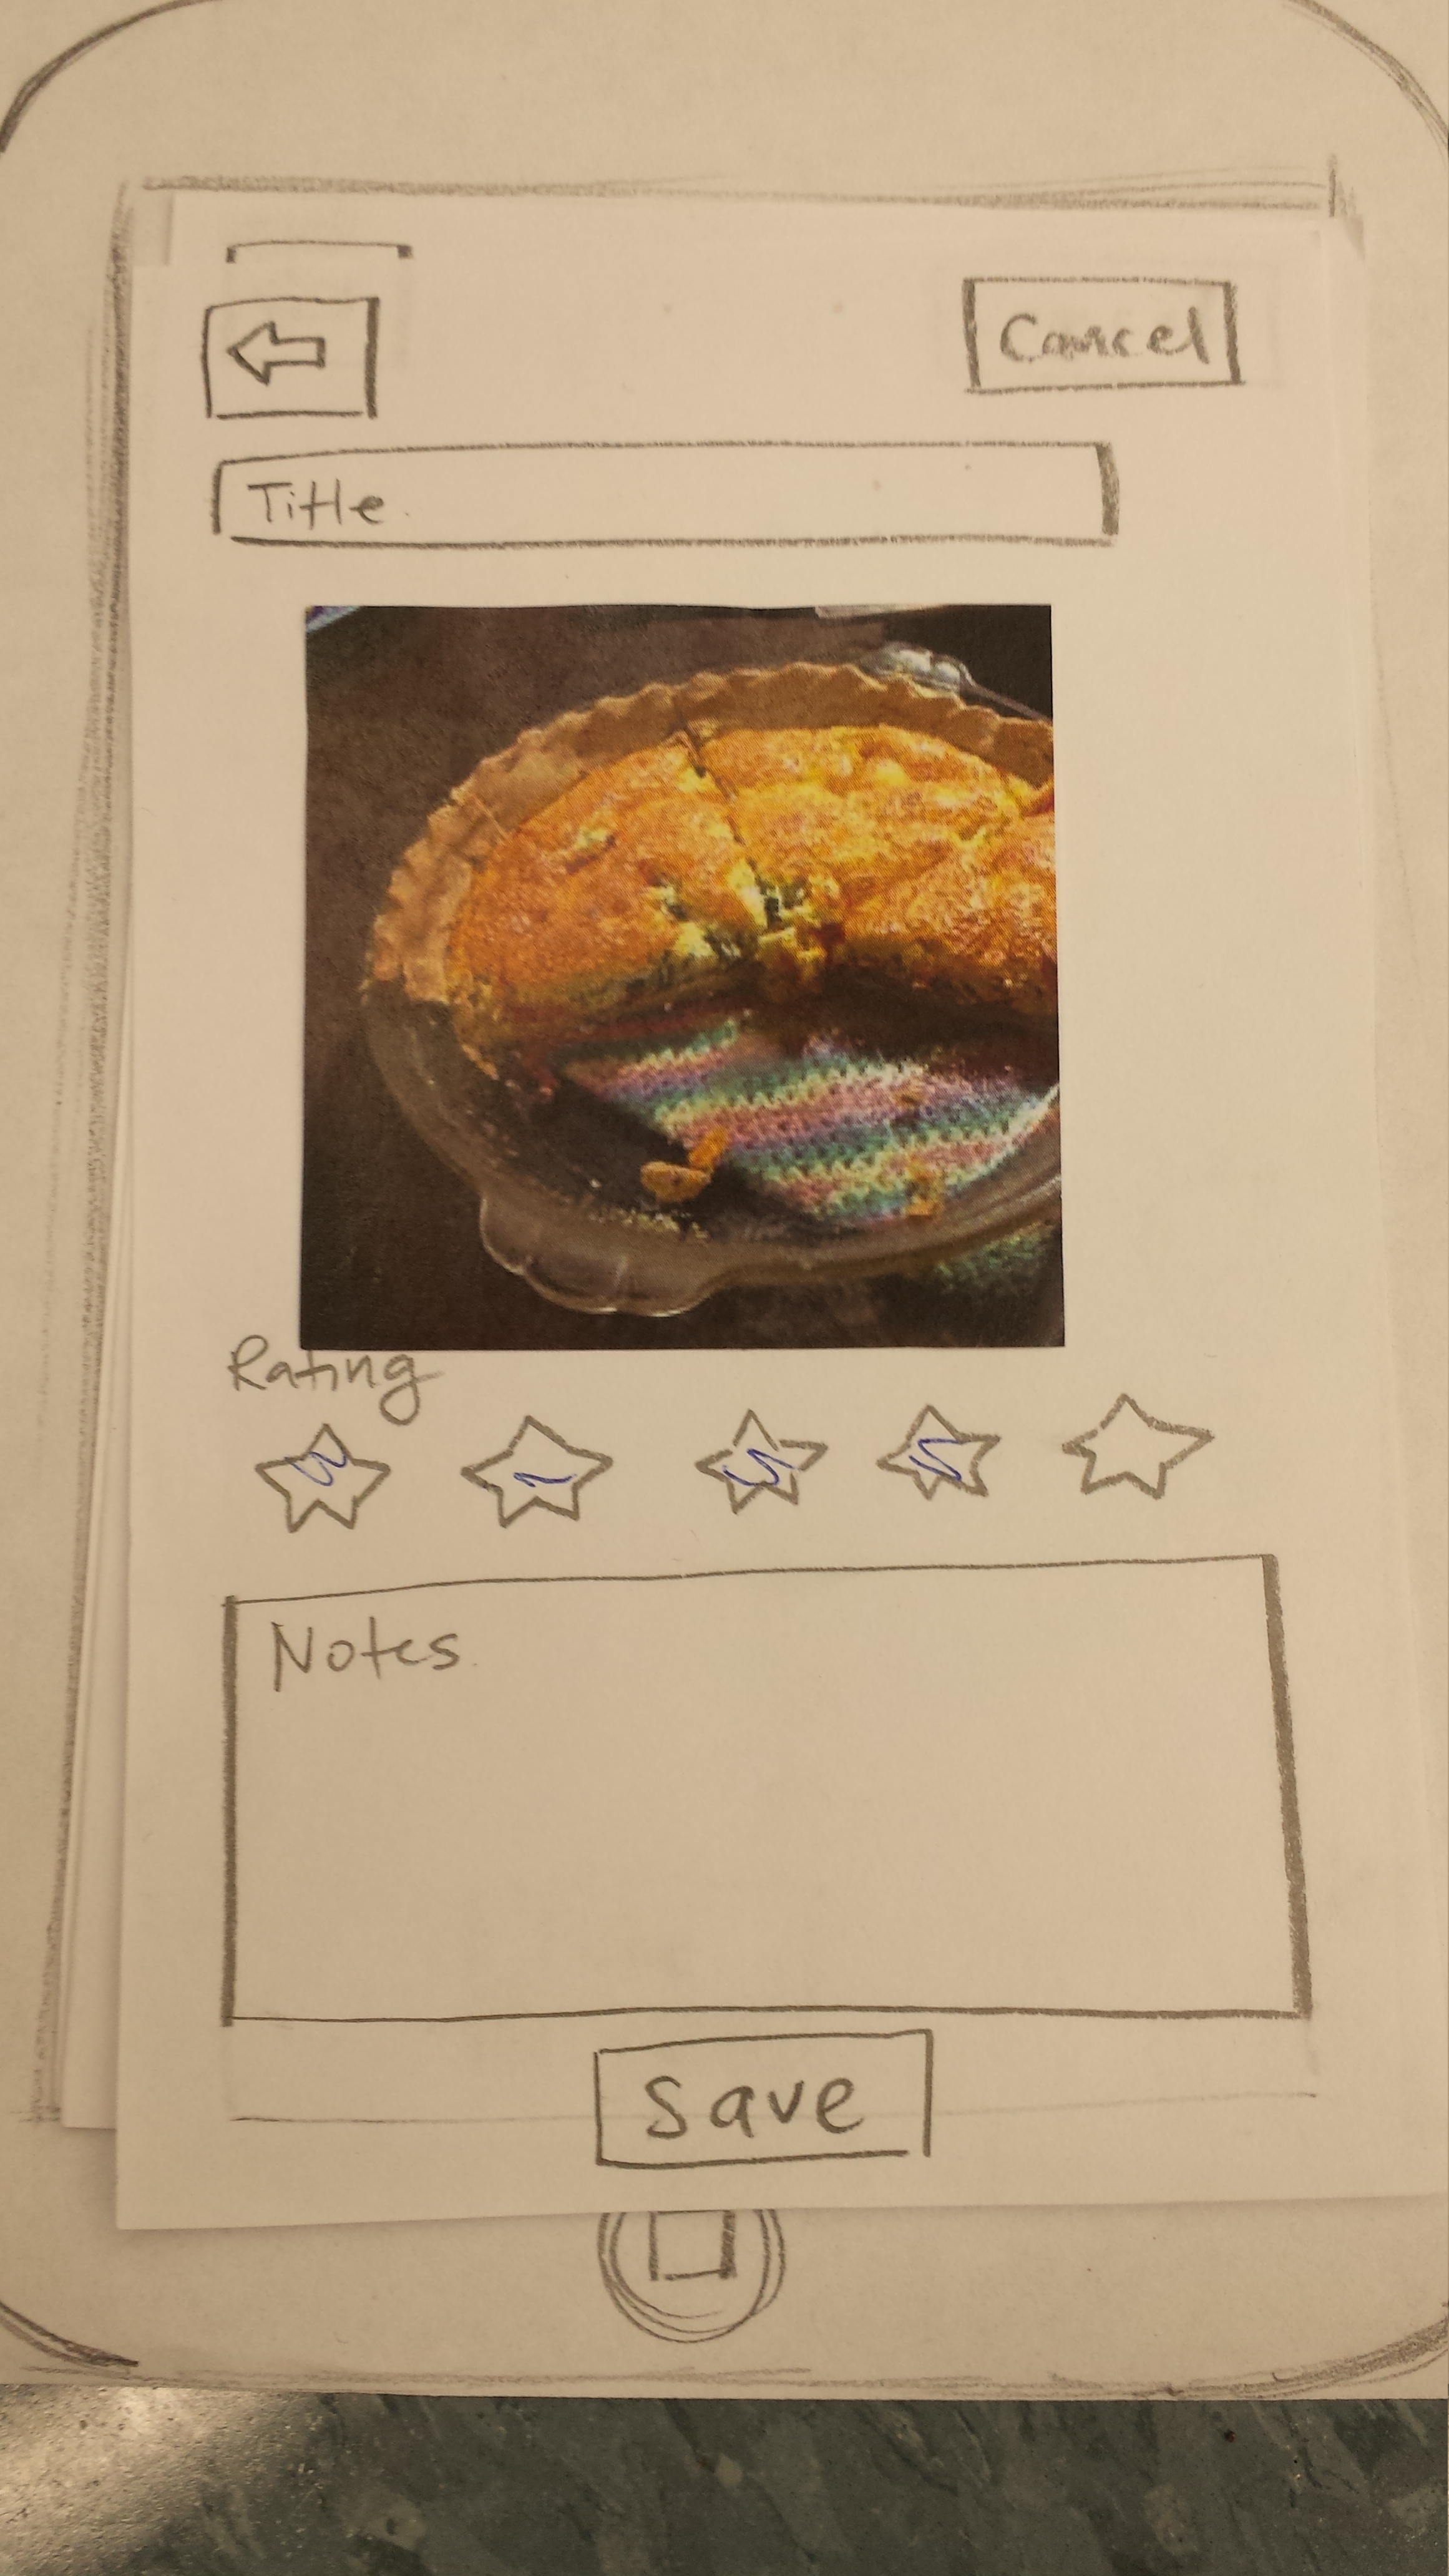 Cancel
Title
Rating
Notes
Save